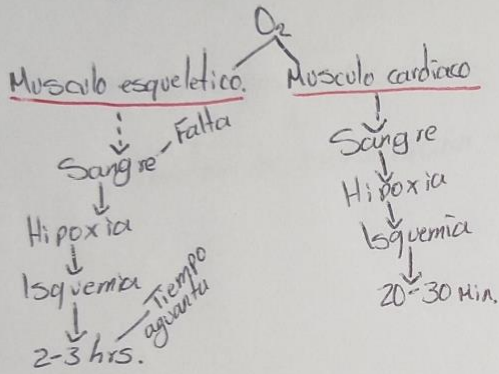 O₂
Musculo esqueletico.
Falta
Sangre
Hipoxia
Isquemia
Tiempo
aguanta
2-3 hrs.
Musculo cardiaco
Sangre
Hipoxia
Isquemia
20-30 Min.